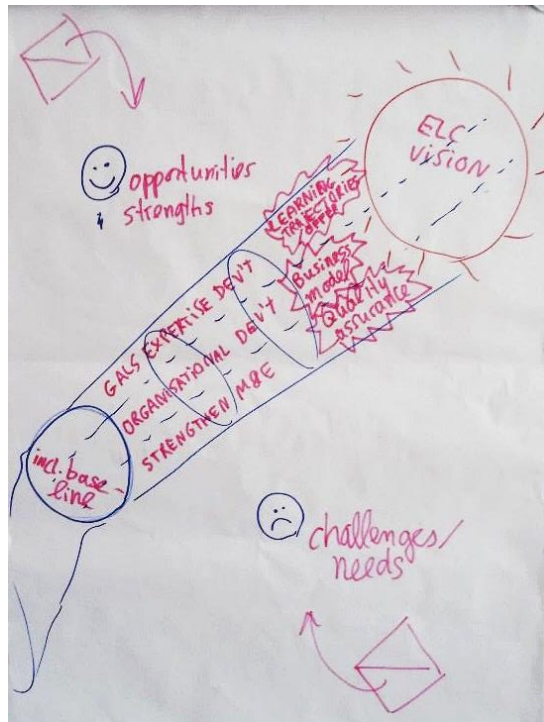 ELC
VISION
opportunities
&
strengths
LEARNING
TRAJECTORIES
OFFER
Business
model
Quality
assurance
GALS EXPERTISE DEV'T
ORGANISATIONAL DEV'T
STRENGTHEN M&E
incl. base-
line
challenges/
needs